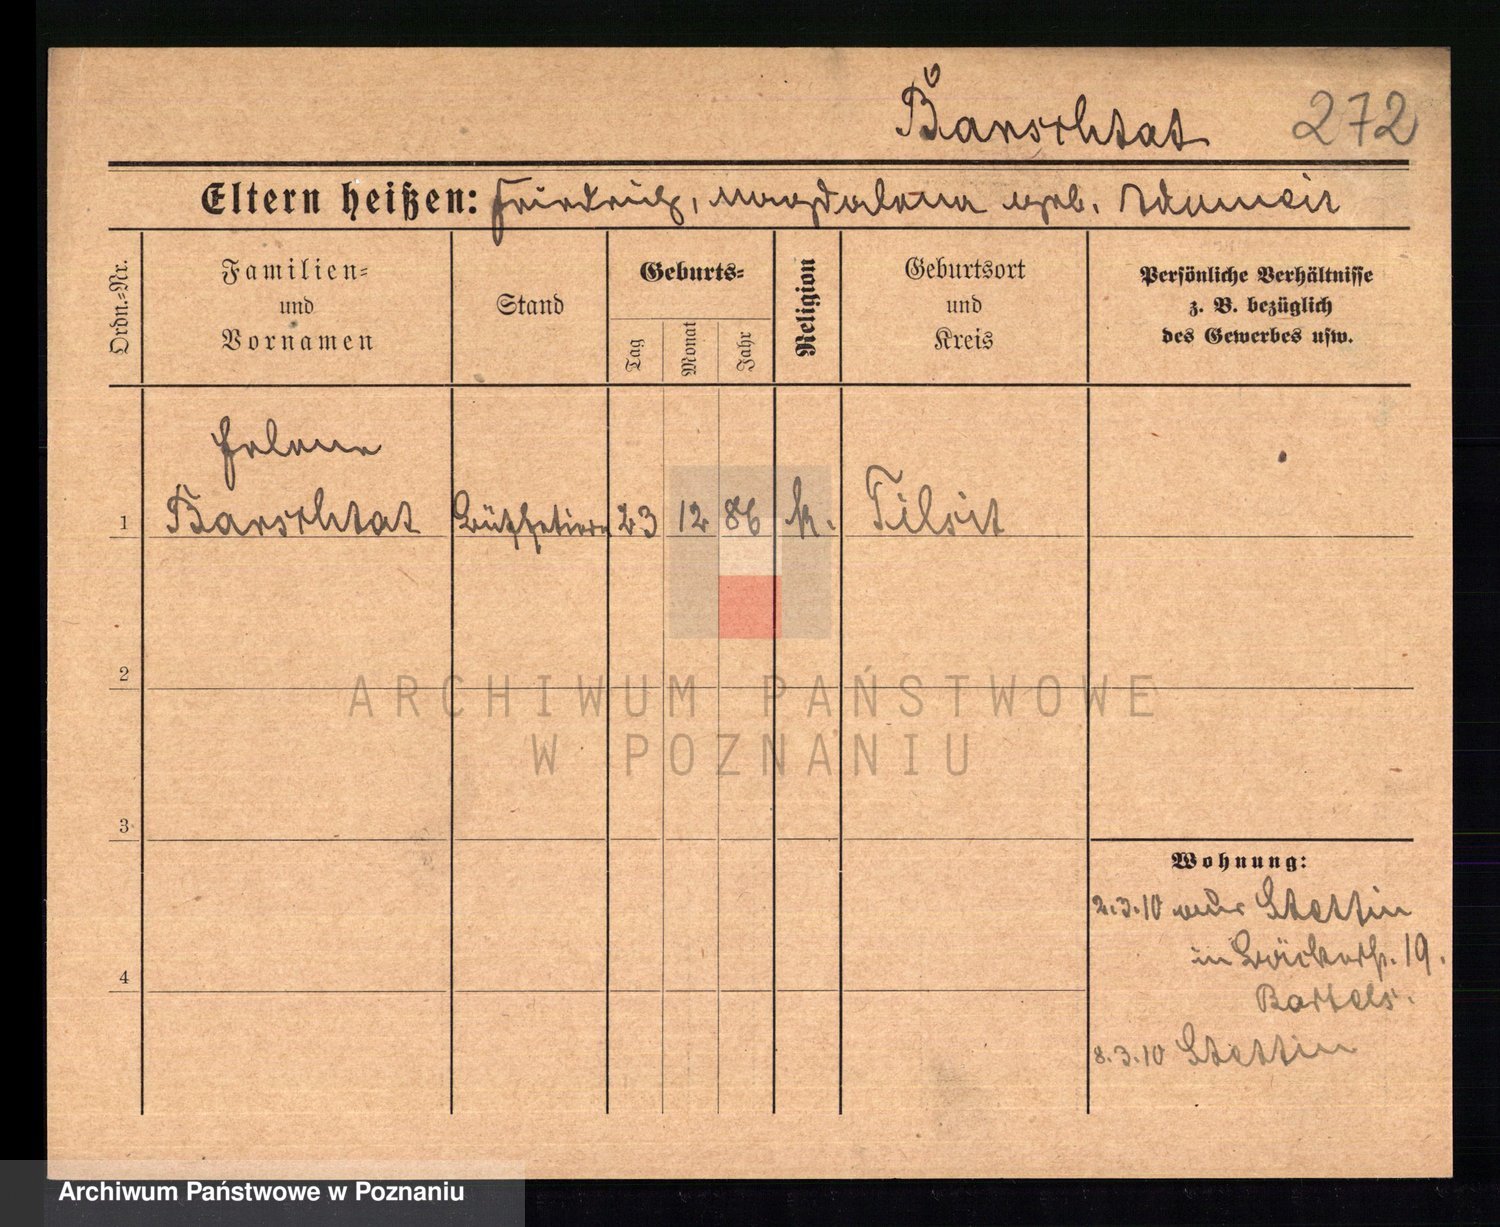 Barschtat 272
Eltern heißen: Friedrich, Magdalena geb.
Ordn.-Nr.
Familien-
und
Vornamen
Stand
Geburts-
Tag
Monat
Jahr
Religion
Geburtsort
und
Kreis
Persönliche Verhältnisse
z. B. bezüglich
des Gewerbes usw.
Helene
1 Barschtat Büffetiere 23 12 86 k. Tilsit
2
ARCHIWUM PAŃSTWOWE
W POZNANIU
3
Wohnung:
2.3.10 aus Stettin
in Bäckerstr. 19.
Bartels.
4
8.3.10 Stettin
Archiwum Państwowe w Poznaniu